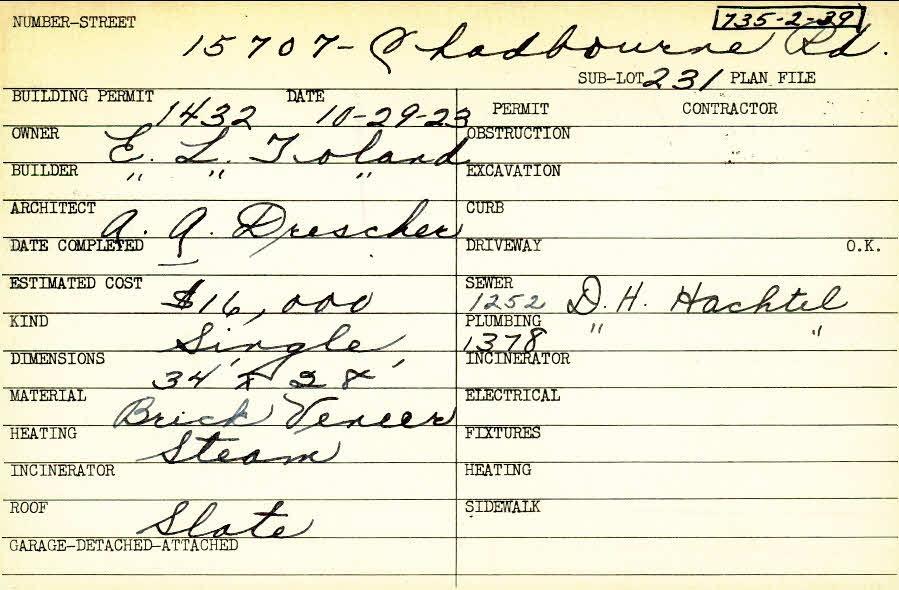 NUMBER-STREET 735-2-39
15707- Chadbourne Rd.
SUB-LOT 231 PLAN FILE
BUILDING PERMIT 1432 DATE 10-29-23
OWNER E. L. Toland
BUILDER " " "
ARCHITECT A. A. Drescher
DATE COMPLETED
ESTIMATED COST $16,000
KIND Single
DIMENSIONS 34' x 28'
MATERIAL Brick Veneer
HEATING Steam
INCINERATOR
ROOF Slate
GARAGE-DETACHED-ATTACHED
PERMIT CONTRACTOR
OBSTRUCTION
EXCAVATION
CURB
DRIVEWAY O.K.
SEWER 1252 D. H. Hachtel
PLUMBING 1378 " "
INCINERATOR
ELECTRICAL
FIXTURES
HEATING
SIDEWALK